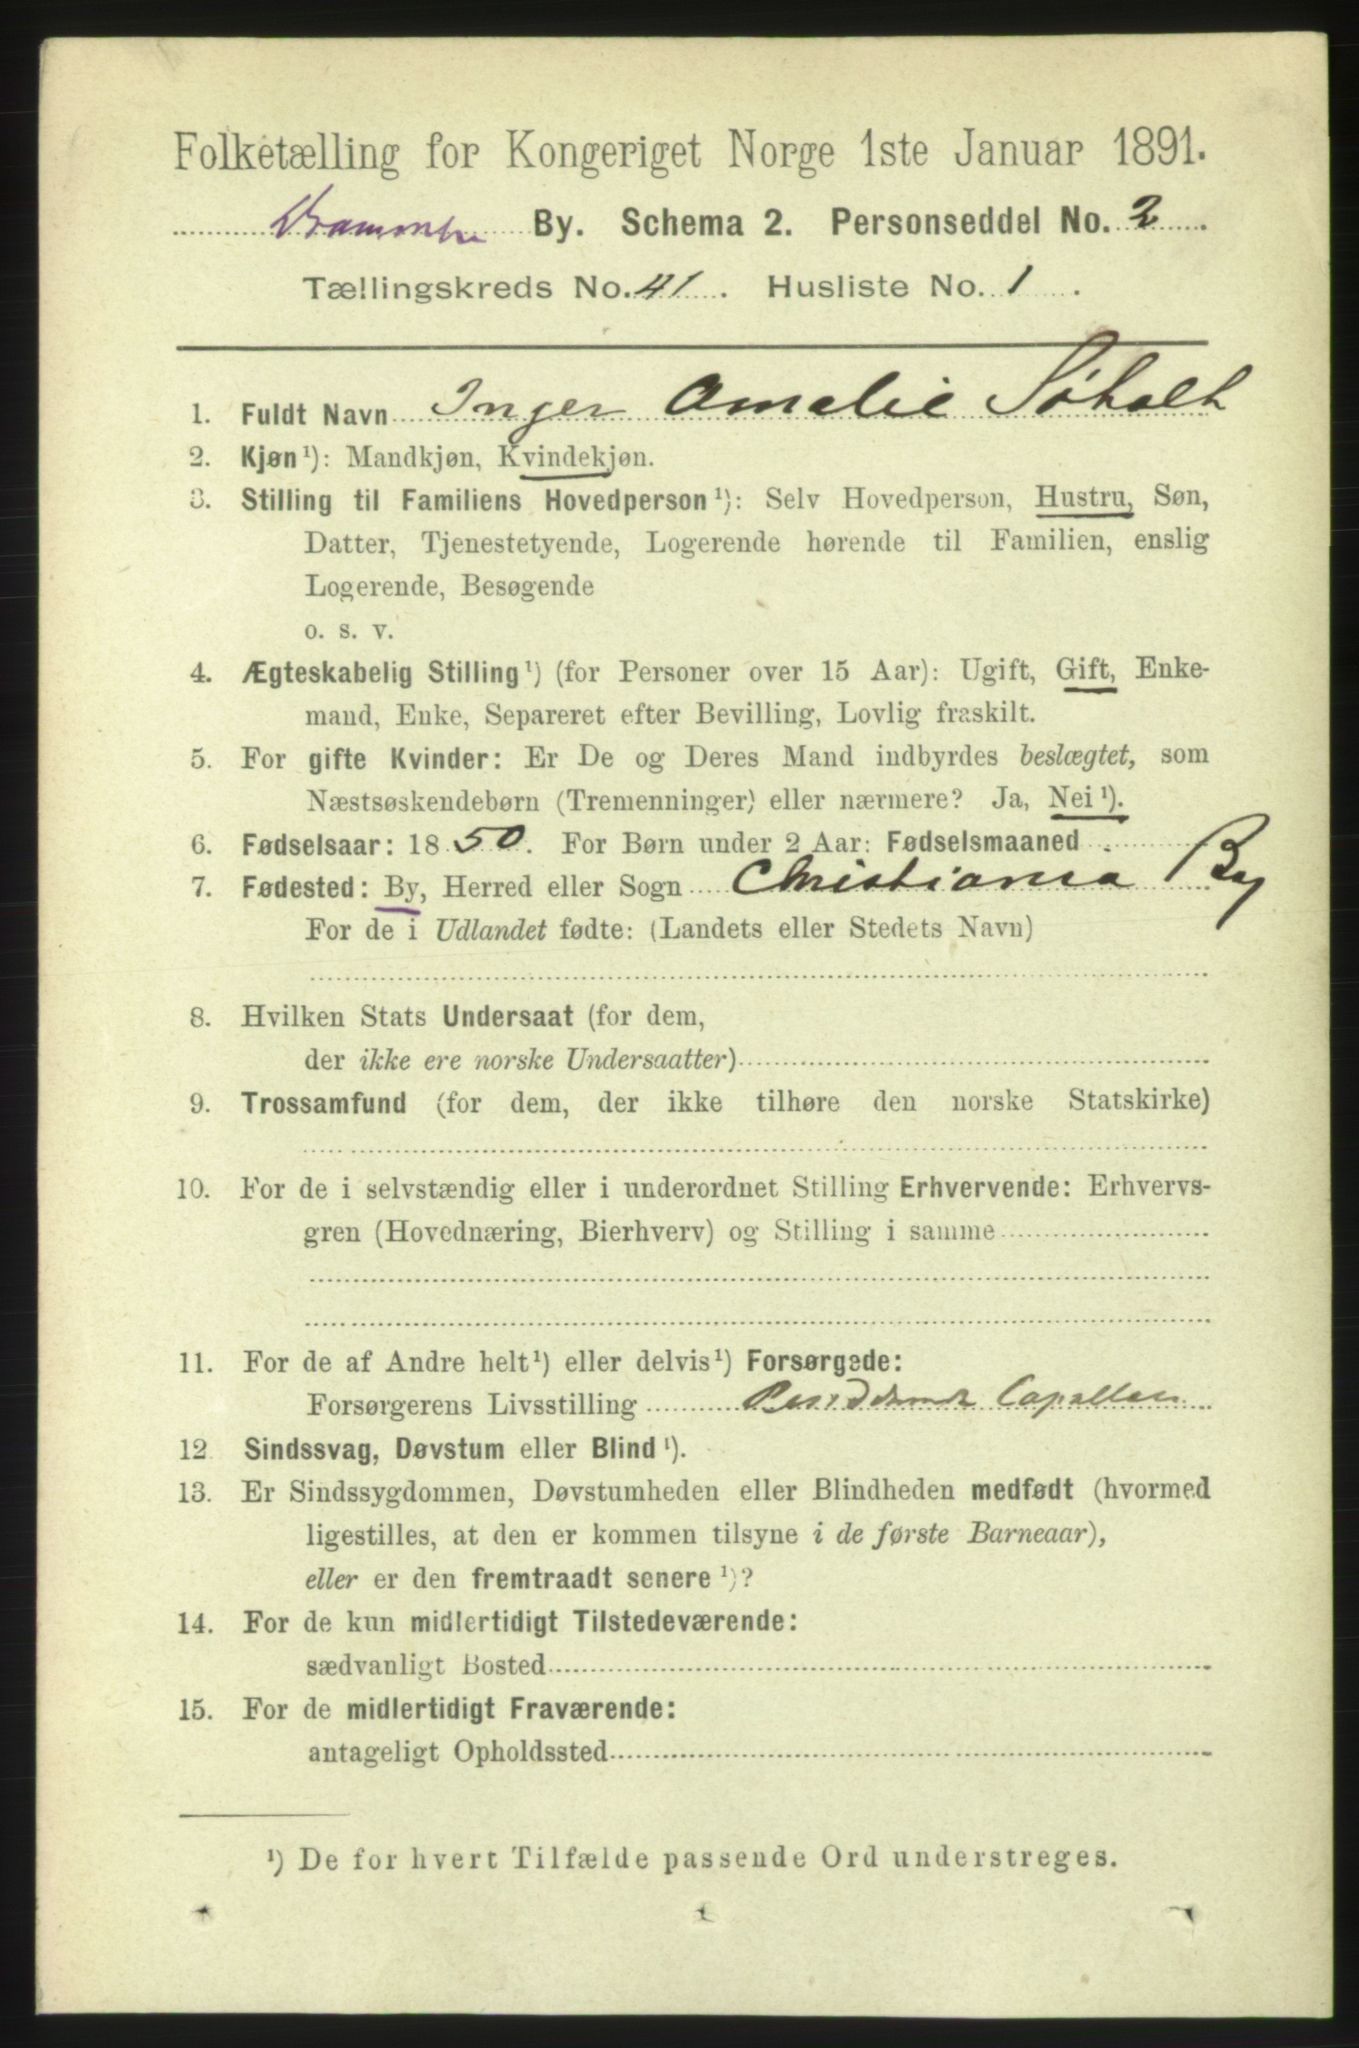 Folketælling for Kongeriget Norge 1ste Januar 1891.
Drammen By. Schema 2. Personseddel No. 2.
Tællingskreds No. 41. Husliste No. 1.
1. Fuldt Navn Inger Amalie Søholt
2. Kjøn ¹): Mandkjøn, Kvindekjøn.
3. Stilling til Familiens Hovedperson ¹): Selv Hovedperson, Hustru, Søn,
Datter, Tjenestetyende, Logerende hørende til Familien, enslig
Logerende, Besøgende
o. s. v.
4. Ægteskabelig Stilling ¹) (for Personer over 15 Aar): Ugift, Gift, Enke-
mand, Enke, Separeret efter Bevilling, Lovlig fraskilt.
5. For gifte Kvinder: Er De og Deres Mand indbyrdes beslægtet, som
Næstsøskendebørn (Tremenninger) eller nærmere? Ja, Nei ¹).
6. Fødselsaar: 1850. For Børn under 2 Aar: Fødselsmaaned .
7. Fødested: By, Herred eller Sogn Christiania By
For de i Udlandet fødte: (Landets eller Stedets Navn)
8. Hvilken Stats Undersaat (for dem,
der ikke ere norske Undersaatter)
9. Trossamfund (for dem, der ikke tilhøre den norske Statskirke)
10. For de i selvstændig eller i underordnet Stilling Erhvervende: Erhvervs-
gren (Hovednæring, Bierhverv) og Stilling i samme
11. For de af Andre helt ¹) eller delvis ¹) Forsørgede:
Forsørgerens Livsstilling Residerende Capellan
12. Sindssvag, Døvstum eller Blind ¹).
13. Er Sindssygdommen, Døvstumheden eller Blindheden medfødt (hvormed
ligestilles, at den er kommen tilsyne i de første Barneaar),
eller er den fremtraadt senere ¹)?
14. For de kun midlertidigt Tilstedeværende:
sædvanligt Bosted
15. For de midlertidigt Fraværende:
antageligt Opholdssted
¹) De for hvert Tilfælde passende Ord understreges.